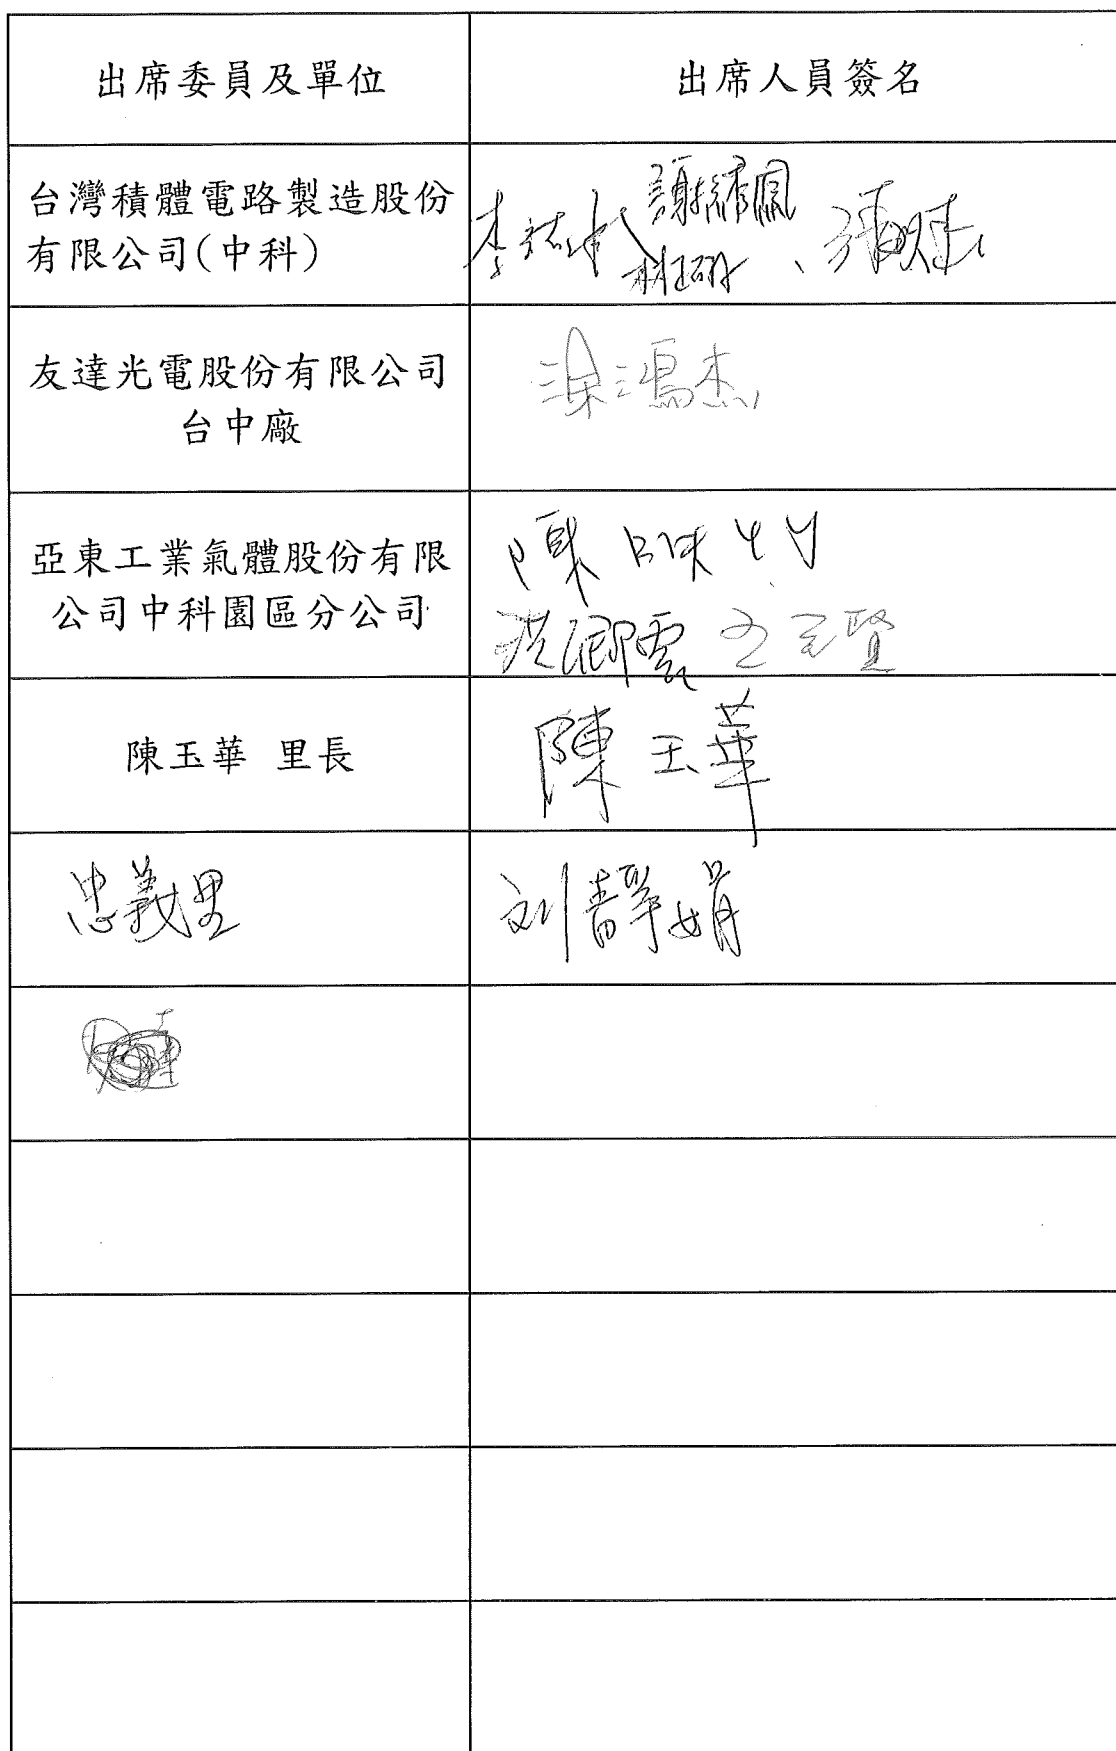 出席委員及單位
出席人員簽名
台灣積體電路製造股份
有限公司(中科)
李
謝
、
友達光電股份有限公司
台中廠
涂鴻杰
亞東工業氣體股份有限
公司中科園區分公司
陳
洪卿雲
賢
陳玉華 里長
陳玉華
忠義里
刘靜娟